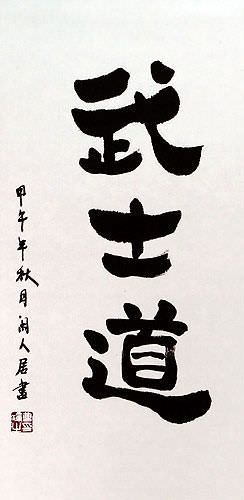 武士道
甲午年秋月闲人居書